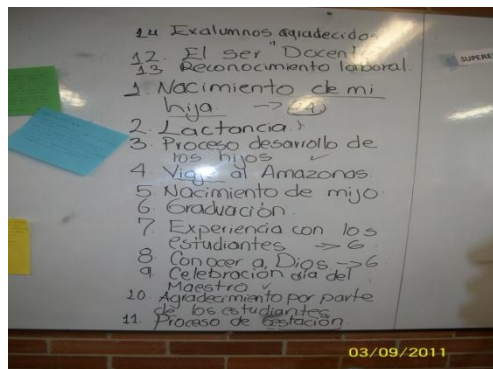 14 Exalumnos agradecidos
12. El ser "Docente
13 Reconocimiento laboral.
1. Nacimiento de mi
hija. →
2. Lactancia.
3. Proceso desarrollo de
los hijos ✓
4. Viaje al Amazonas.
5 Nacimiento de mijo.
6. Graduación.
7. Experiencia con los
estudiantes → 6.
8. Conocer a Dios → 6
9. Celebración día del
Maestro ✓
10. Agradecimiento por parte
de los estudiantes
11. Proceso de Gestación
SUPERE
03/09/2011